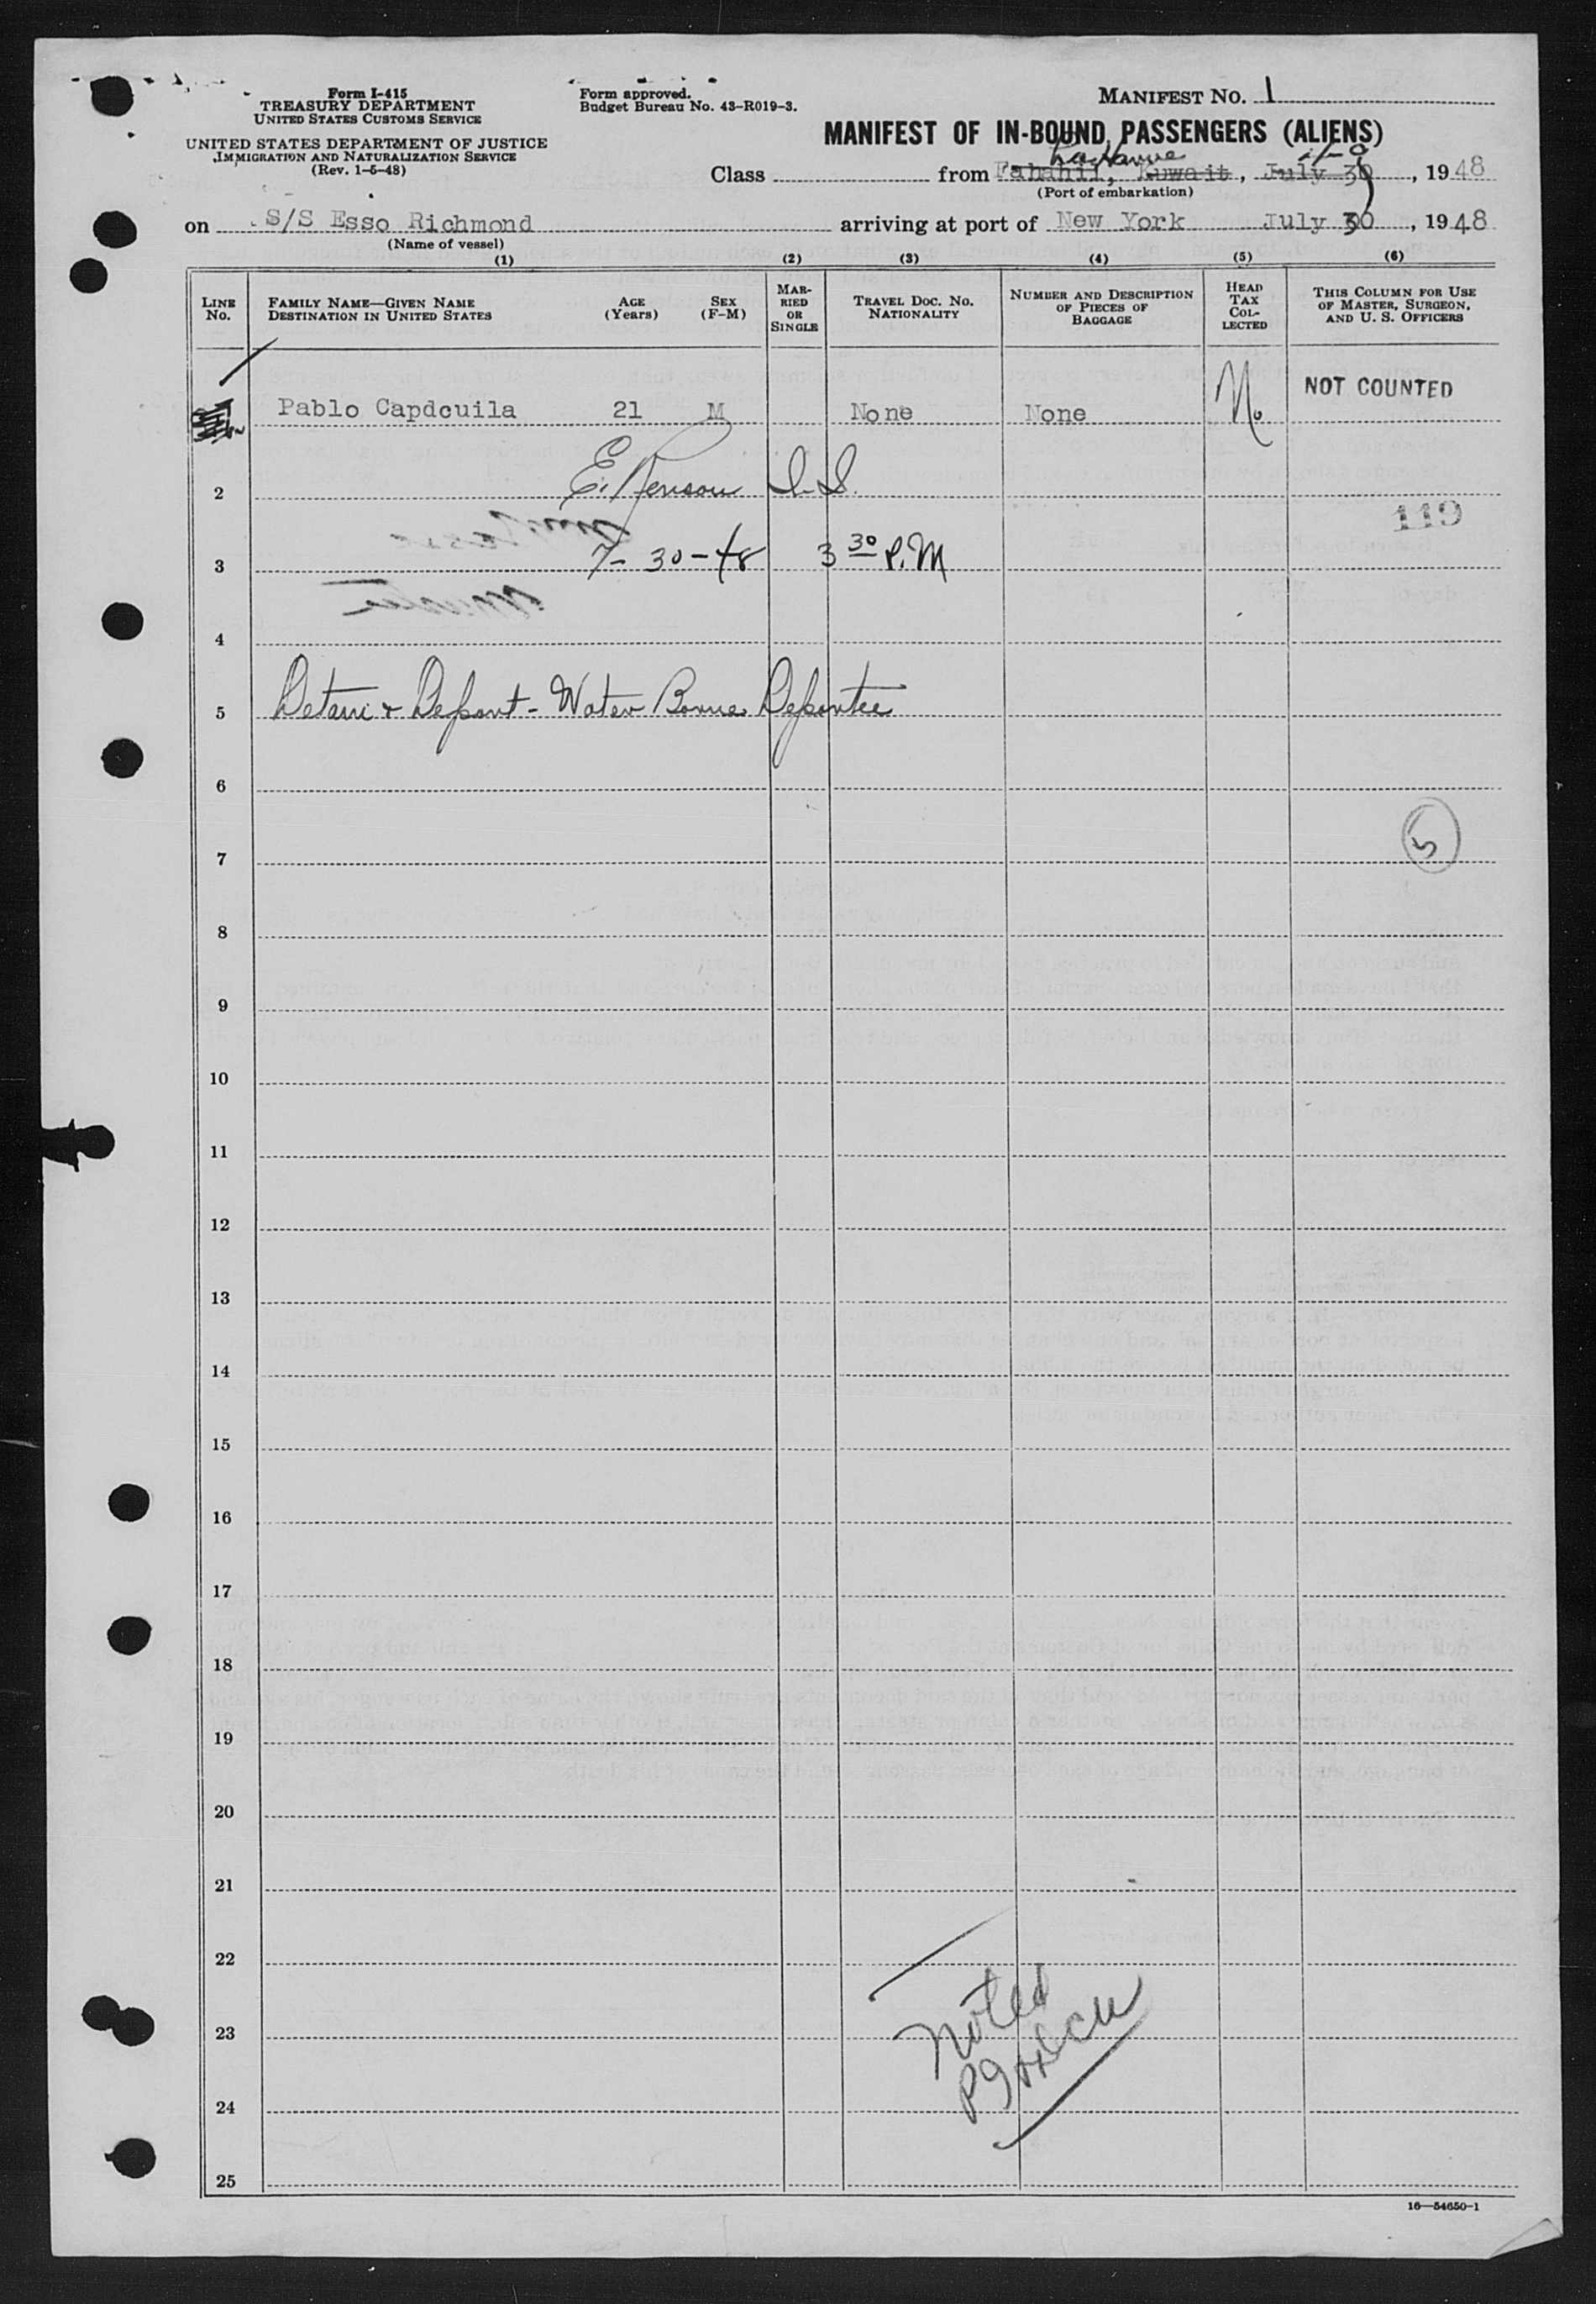 Form I-415
TREASURY DEPARTMENT
UNITED STATES CUSTOMS SERVICE
UNITED STATES DEPARTMENT OF JUSTICE
IMMIGRATION AND NATURALIZATION SERVICE
(Rev. 1-5-48)
Form approved.
Budget Bureau No. 43-R019-3.
MANIFEST NO. 1
MANIFEST OF IN-BOUND PASSENGERS (ALIENS)
Class from Fahahil, Kuwait, July 30, 1948
(Port of embarkation)
on S/S Esso Richmond arriving at port of New York July 30, 1948
(Name of vessel)
(1) (2) (3) (4) (5) (6)
LINE No. FAMILY NAME—GIVEN NAME DESTINATION IN UNITED STATES AGE (Years) SEX (F-M) MARRIED OR SINGLE TRAVEL DOC. NO. NATIONALITY NUMBER AND DESCRIPTION OF PIECES OF BAGGAGE HEAD TAX COLLECTED THIS COLUMN FOR USE OF MASTER, SURGEON, AND U. S. OFFICERS
Pablo Capdcuila 21 M None None No NOT COUNTED
2
119
3 7-30-48 3 30 P.M
4
5 Detain & Deport - Water Borne Deportee
6
5
7
8
9
10
11
12
13
14
15
16
17
18
19
20
21
22
Noted
23
24
25
16—54650-1